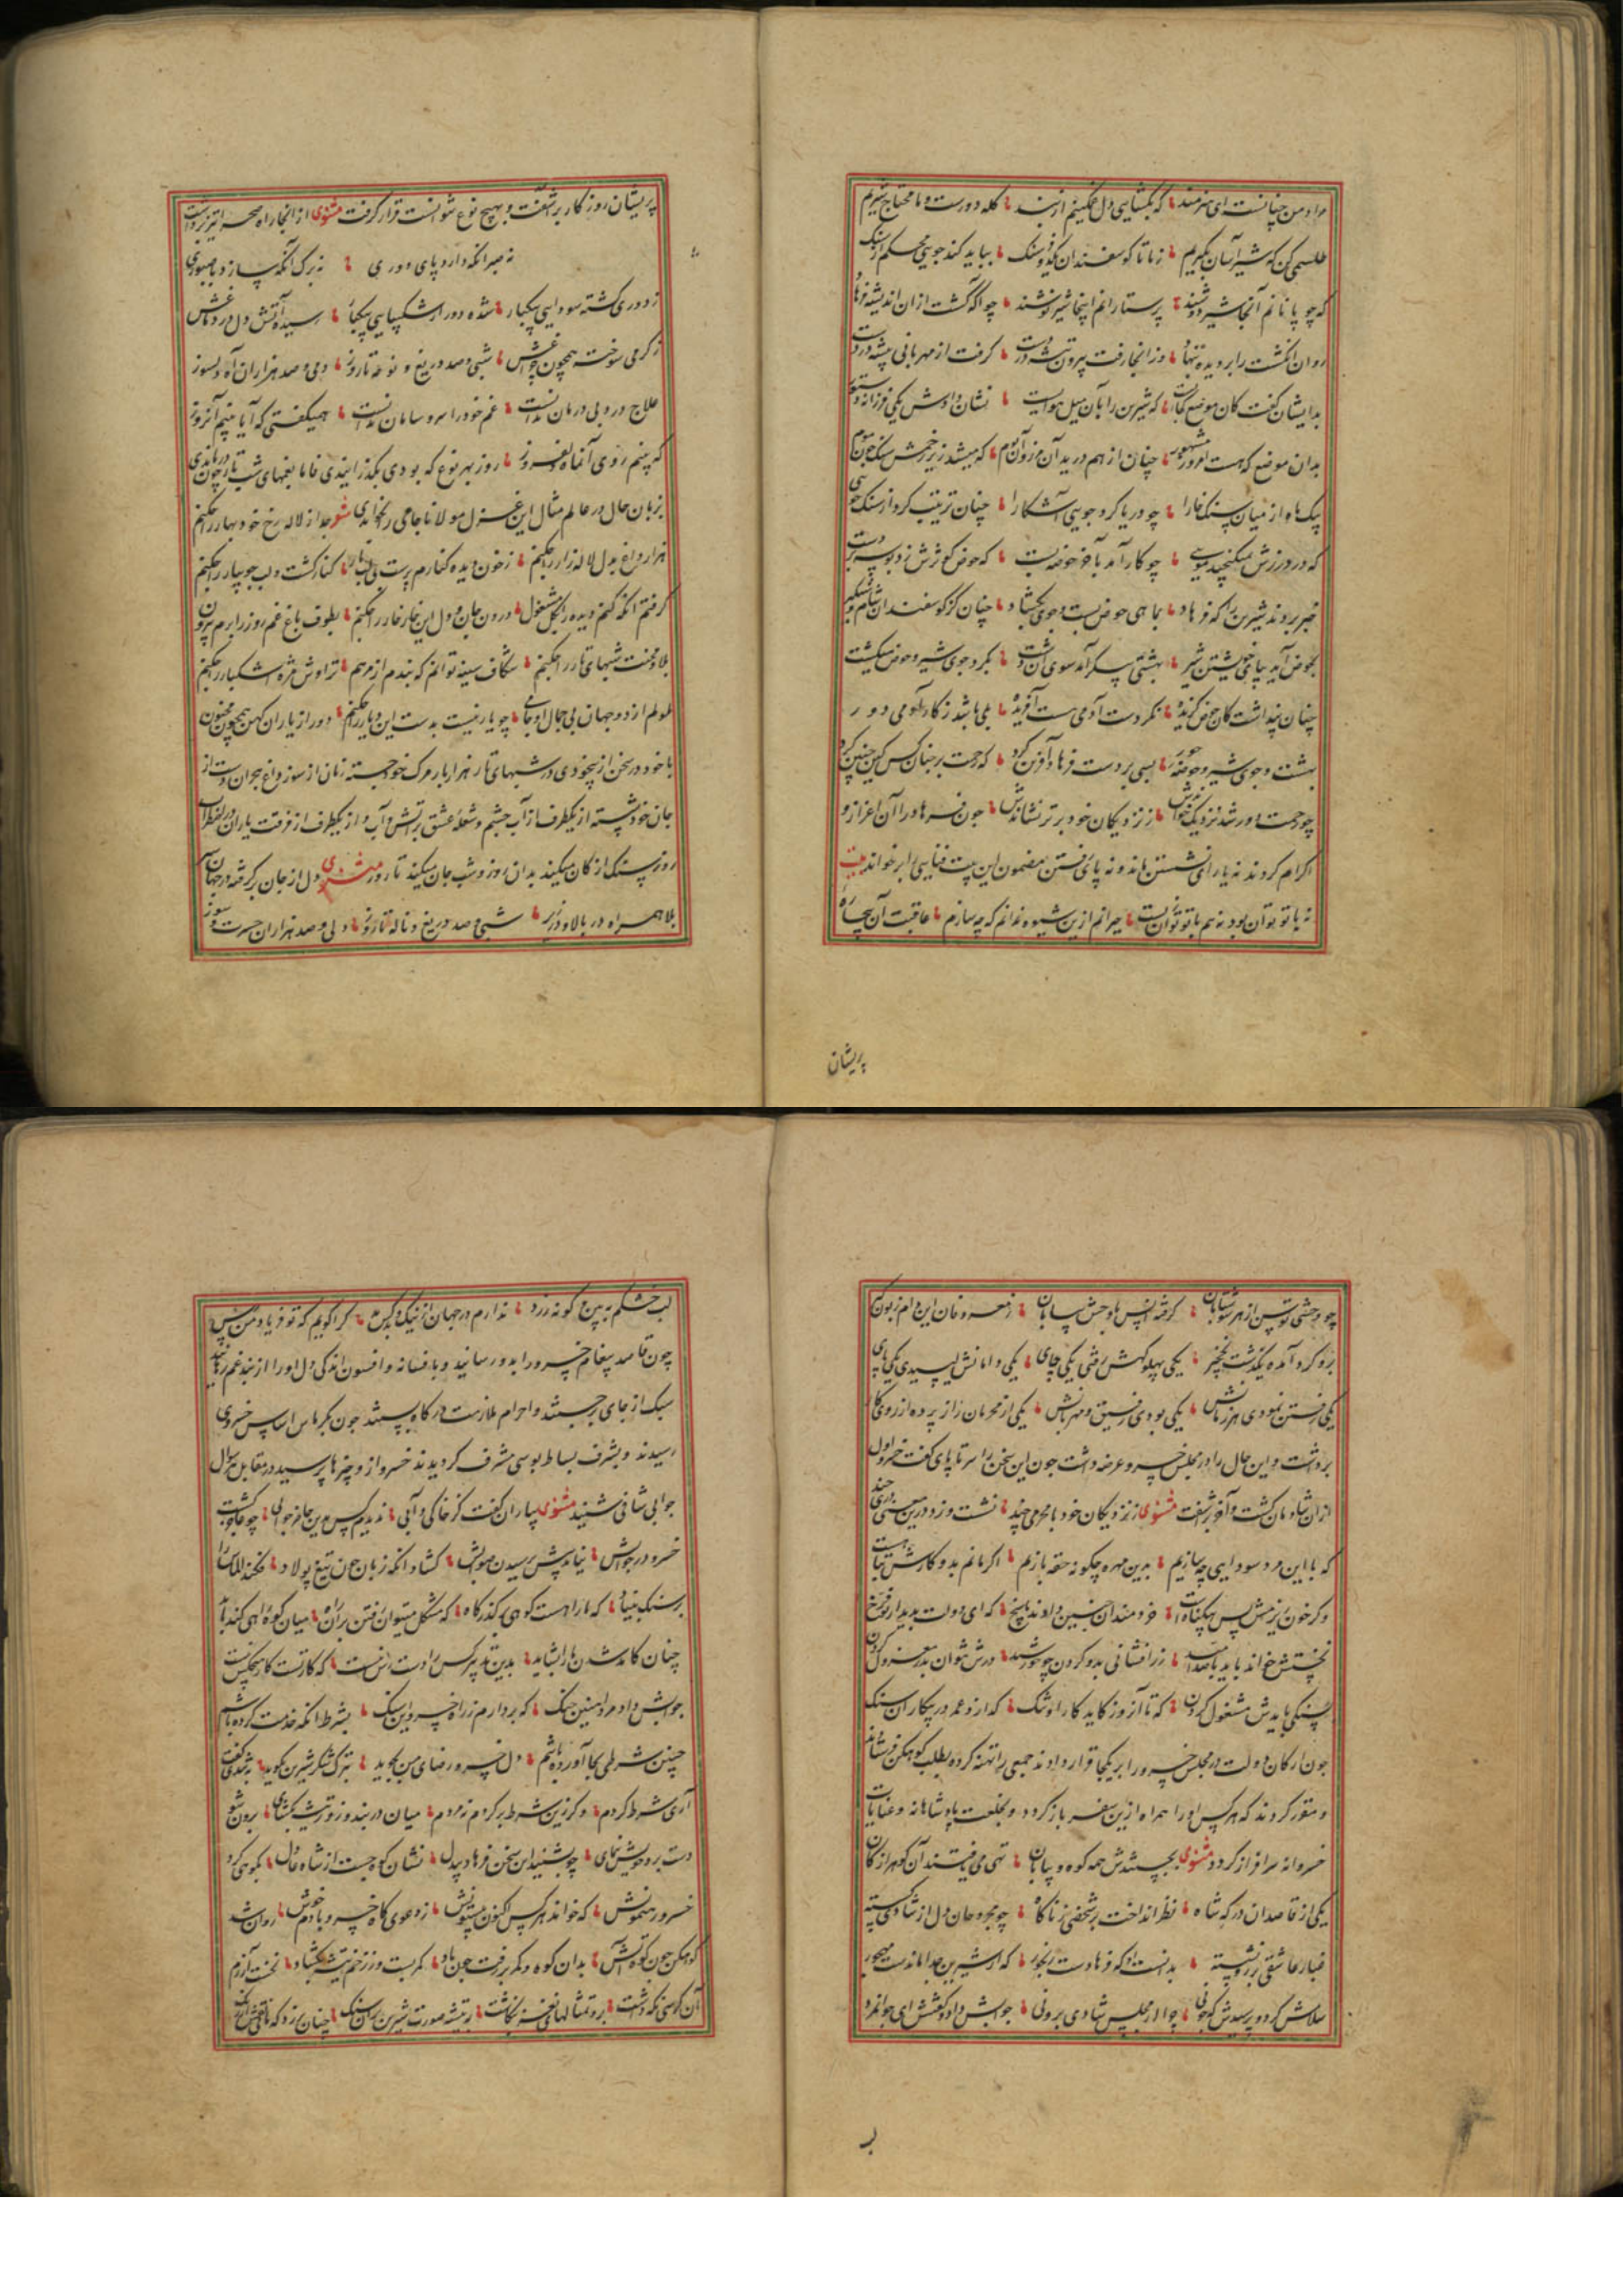 مراد من چنانست ای هنرمند که بگشایی دل غمگینم از بند کله دورست و ما محتاج شیریم
طلسمی کن که شیر آسان بگیریم ز ما تا کوسفندان یکدو فرسنک بباید کند جویی محکم از سنک
که چوپانانم آنجا شیر دوشند پرستارانم اینجا شیر نوشند چو آگه گشت ازان اندیشه فرهاد
روان انگشت را بر دیده بنهاد وز انجا رفت بیرون تیشه در دست گرفت از مهربانی پیشه در دست
بدایشان گفت کان موضع کجاست که شیرین را بآن میل هواست نشان دادش یکی فرزانه دستور
بدان موضع که هست امروز مشهور چنان از هم درید آن مرز و آن بوم که میشد زیر زخمش سنک چون موم
بیک ماه از میان سنک خارا چو دریا کرد جویی آشکارا چنان ترتیب کرد از سنک جویی
که در درزش نمیکنجید مویی چو کار آمد بآخر حوضه بست که حوض کوثرش زد بوسه بر دست
خبر بردند شیرین را که فرهاد بماهی حوض بست و جوی بگشاد چنان کز کوسفندان شام و شبکیر
بحوض آید بپای خویشتن شیر بهشتی پیکر آمد سوی آن دشت بگرد جوی شیر و حوض میگشت
چنان پنداشت کان حوض گزیده نکردست آدمی هست آفریده بلی باشد ز کار آدمی دور
بهشت و جوی شیر و حوضه و حور بسی بر دست فرهاد آفرین کرد که رحمت بر چنان کس کین چنین کرد
چو زحمت دور شد نزدیک خواندش ز نزدیکان خود برتر نشاندش چون فرهاد را آن اعزاز و
اکرام کردند نه یارای نشستن ماند و نه پای رفتن مضمون این بیت فنایی را بر خواند بیت
نه با تو توان بود نه هم با تو توان زیست حیرانم ازین شیوه ندانم که چه سازم عاقبت آن بیچاره
پریشان
پریشان روزکار برآشفت و بهیچ نوع نتوانست قرار گرفت مثنوی از انجا راه صحرا تیز برداشت
نه صبر انکه دارد پای دوری نه برک آنکه سازد با صبوری
ز دوری گشته سودایی بیکبار شده دور از شکیبایی بیکبار رسیده آتش دل در دماغش
ز گرمی سوخت همچون چراغش شبی و صد دریغ و نوحه تا روز دمی و صد هزاران آه دلسوز
علاج درد بی درمان ندانست غم خود را سر و سامان ندانست همیگفتی که آیا بینم آنروز
که بینم روی آن ماه دلفروز روز بهر نوع که بودی بگذرانیدی فاما بغمهای شب تار چون در ماندی
بزبان حال در عالم مثال این غزل مولانا جامی را خواندی شعر جدا ز لاله رخ خود بهار را چکنم
هزار داغ بدل لاله زار را چکنم ز خون دیده کنارم پرست بی لب یار کنار کشت و لب جویبار را چکنم
گرفتم انکه کنم دیده را بگل مشغول درون جان و دل این خار خار را چکنم بطوف باغ غم روز را برم بیرون
بلا و محنت شبهای تار را چکنم شکاف سینه توانم که بندم از مرهم تراوش مژه اشکبار را چکنم
ملولم از دو جهان بی جمال او جامی چو یار نیست بدست این دیار را چکنم دور از یاران کهن همچون مجنون
با خود در سخن از بیخودی در شبهای تار هزار بار مرک خود جسته زمان از سوز داغ هجران دست از
جان خود شسته از یکطرف از آب چشم و شعله عشق بر آتش و آب و از یکطرف از فرقت یاران در اضطراب
روز سنک از کان میکند بدان روز و شب جان میکند تا روز مثنوی دل از جان برگرفته در جهان
بلا همراه در بالا و در زیر شبی و صد دریغ و ناله تا روز دلی و صد هزاران حسرت و سوز
چو وحشی توسن از هر سو شتابان گرفته انس با وحش بیابان ز معروفان این دام زبون گیر
برو گرد آمده یکدشت نخجیر یکی پهلو گهش رفتی یکی جای یکی دامانش لیسیدی یکی پای
یکی رفتن نمودی هر زمانش یکی بودی رفیق و مهربانش یکی از محرمان راز پرده از روی کار
برداشت و این حال را در مجلس خسرو عرضه داشت چون این سخن را سرتا پای گفت خسرو اول
ازان شادمان گشت و آخر برآشفت مثنوی ز نزدیکان خود با محرمی چند نشست و زد درین معنی دری چند
که با این مرد سودایی چه سازیم بدین مهره چگونه حقه بازیم اگر مانم بدو کارش تباهست
و کر خون ریزمش پس بیگناهست خردمندان چنین دادند پاسخ که ای دولت بدیدار تو فرخ
نخستش خواند باید با صد امید زر افشانی بدو کردن چو خورشید ورش نتوان بزر معزول کردن
بسنگی بایدش مشغول کردن که تا آن روز کاید کار او تنگ گذارد عمر در پیکار آن سنگ
چون ارکان دولت در مجلس خسرو را بر یکجا قرار دادند جمعی را تهنه کرده بطلب کوهکن فرستادند
و مقرر کردند که هر کس او را همراه ازین سفر باز گردد و بخلعت پادشاهانه و عنایات
خسروانه سرافراز گردد مثنوی بجستندش همه کوه و بیابان تهی می یافتند آن گوهر از کان
یکی از قاصدان درگه شاه نظر انداخت بر شخصی ز ناگاه چو مجروحان دل از شادی گسسته
غبار عاشقی بر رو نشسته بدانست او که فرهادست رنجور که از شیرین جدا ماندست مهجور
سلامش کرد و پرسیدش که چونی چرا از مجلس شادی برونی جوابش داد و گفتش ای جوانمرد
لب خشکم ببین و گونه زرد ندارم در جهان از نیک و بد کس کرا گویم که تو فریاد من رس
چون قاصد پیغام خسرو را بدو رسانید و بافسانه و افسون اندکی دل او را از بند غم رهانید
سبک از جای برجستند و احرام ملازمت درگاه بستند چون بکریاس اساس خسروی
رسیدند و بشرف بساط بوسی مشرف گردیدند خسرو از و چیزها پرسید در مقابل هر سوال
جوابی شافی شنید مثنوی بیاران گفت کز خاکی و آبی ندیدم کس بدین حاضر جوابی چو عاجز گشت
خسرو در جوابش نیامد پیش پرسیدن صوابش گشاد انکه زبان چون تیغ پولاد فکند الماس را
بر سنک بنیاد که ما را هست کوهی بر گذرگاه که مشکل میتوان رفتن بر آن راه میان کوه راهی کند باید
چنان کامد شدن ما را بشاید بدین تدبیر کس را دست رس نیست که کار تست کار هیچکس نیست
جوابش داد مرد آهنین چنک که بردارم ز راه خسرو این سنک بشرط انکه خدمت کرده باشم
چنین شرطی بجا آورده باشم دل خسرو رضای من بجوید بترک شکر شیرین بگوید بتندی گفت
آری شرط کردم وگر زین شرط برگردم نه مردم میان دربند و زور دست بگشای برون شو
دست برد خویش بنمای چو بشنید این سخن فرهاد بیدل نشان کوه جست از شاه عادل بکوهی کرد
خسرو رهنمونش که خواند هر کس اکنون بیستونش ز دعوی گاه خسرو با دم خوش روان شد
کوهکن چون کوه آتش بدان کوه و کمر رفت چون باد کمر بست و ز زخم تیشه بگشاد نخست آزرم
آن کرسی نگه داشت برو تمثالهای نغز بنگاشت بتیشه صورت شیرین بر آن سنک چنان بر زد که مانی نقش ارژنگ
بر